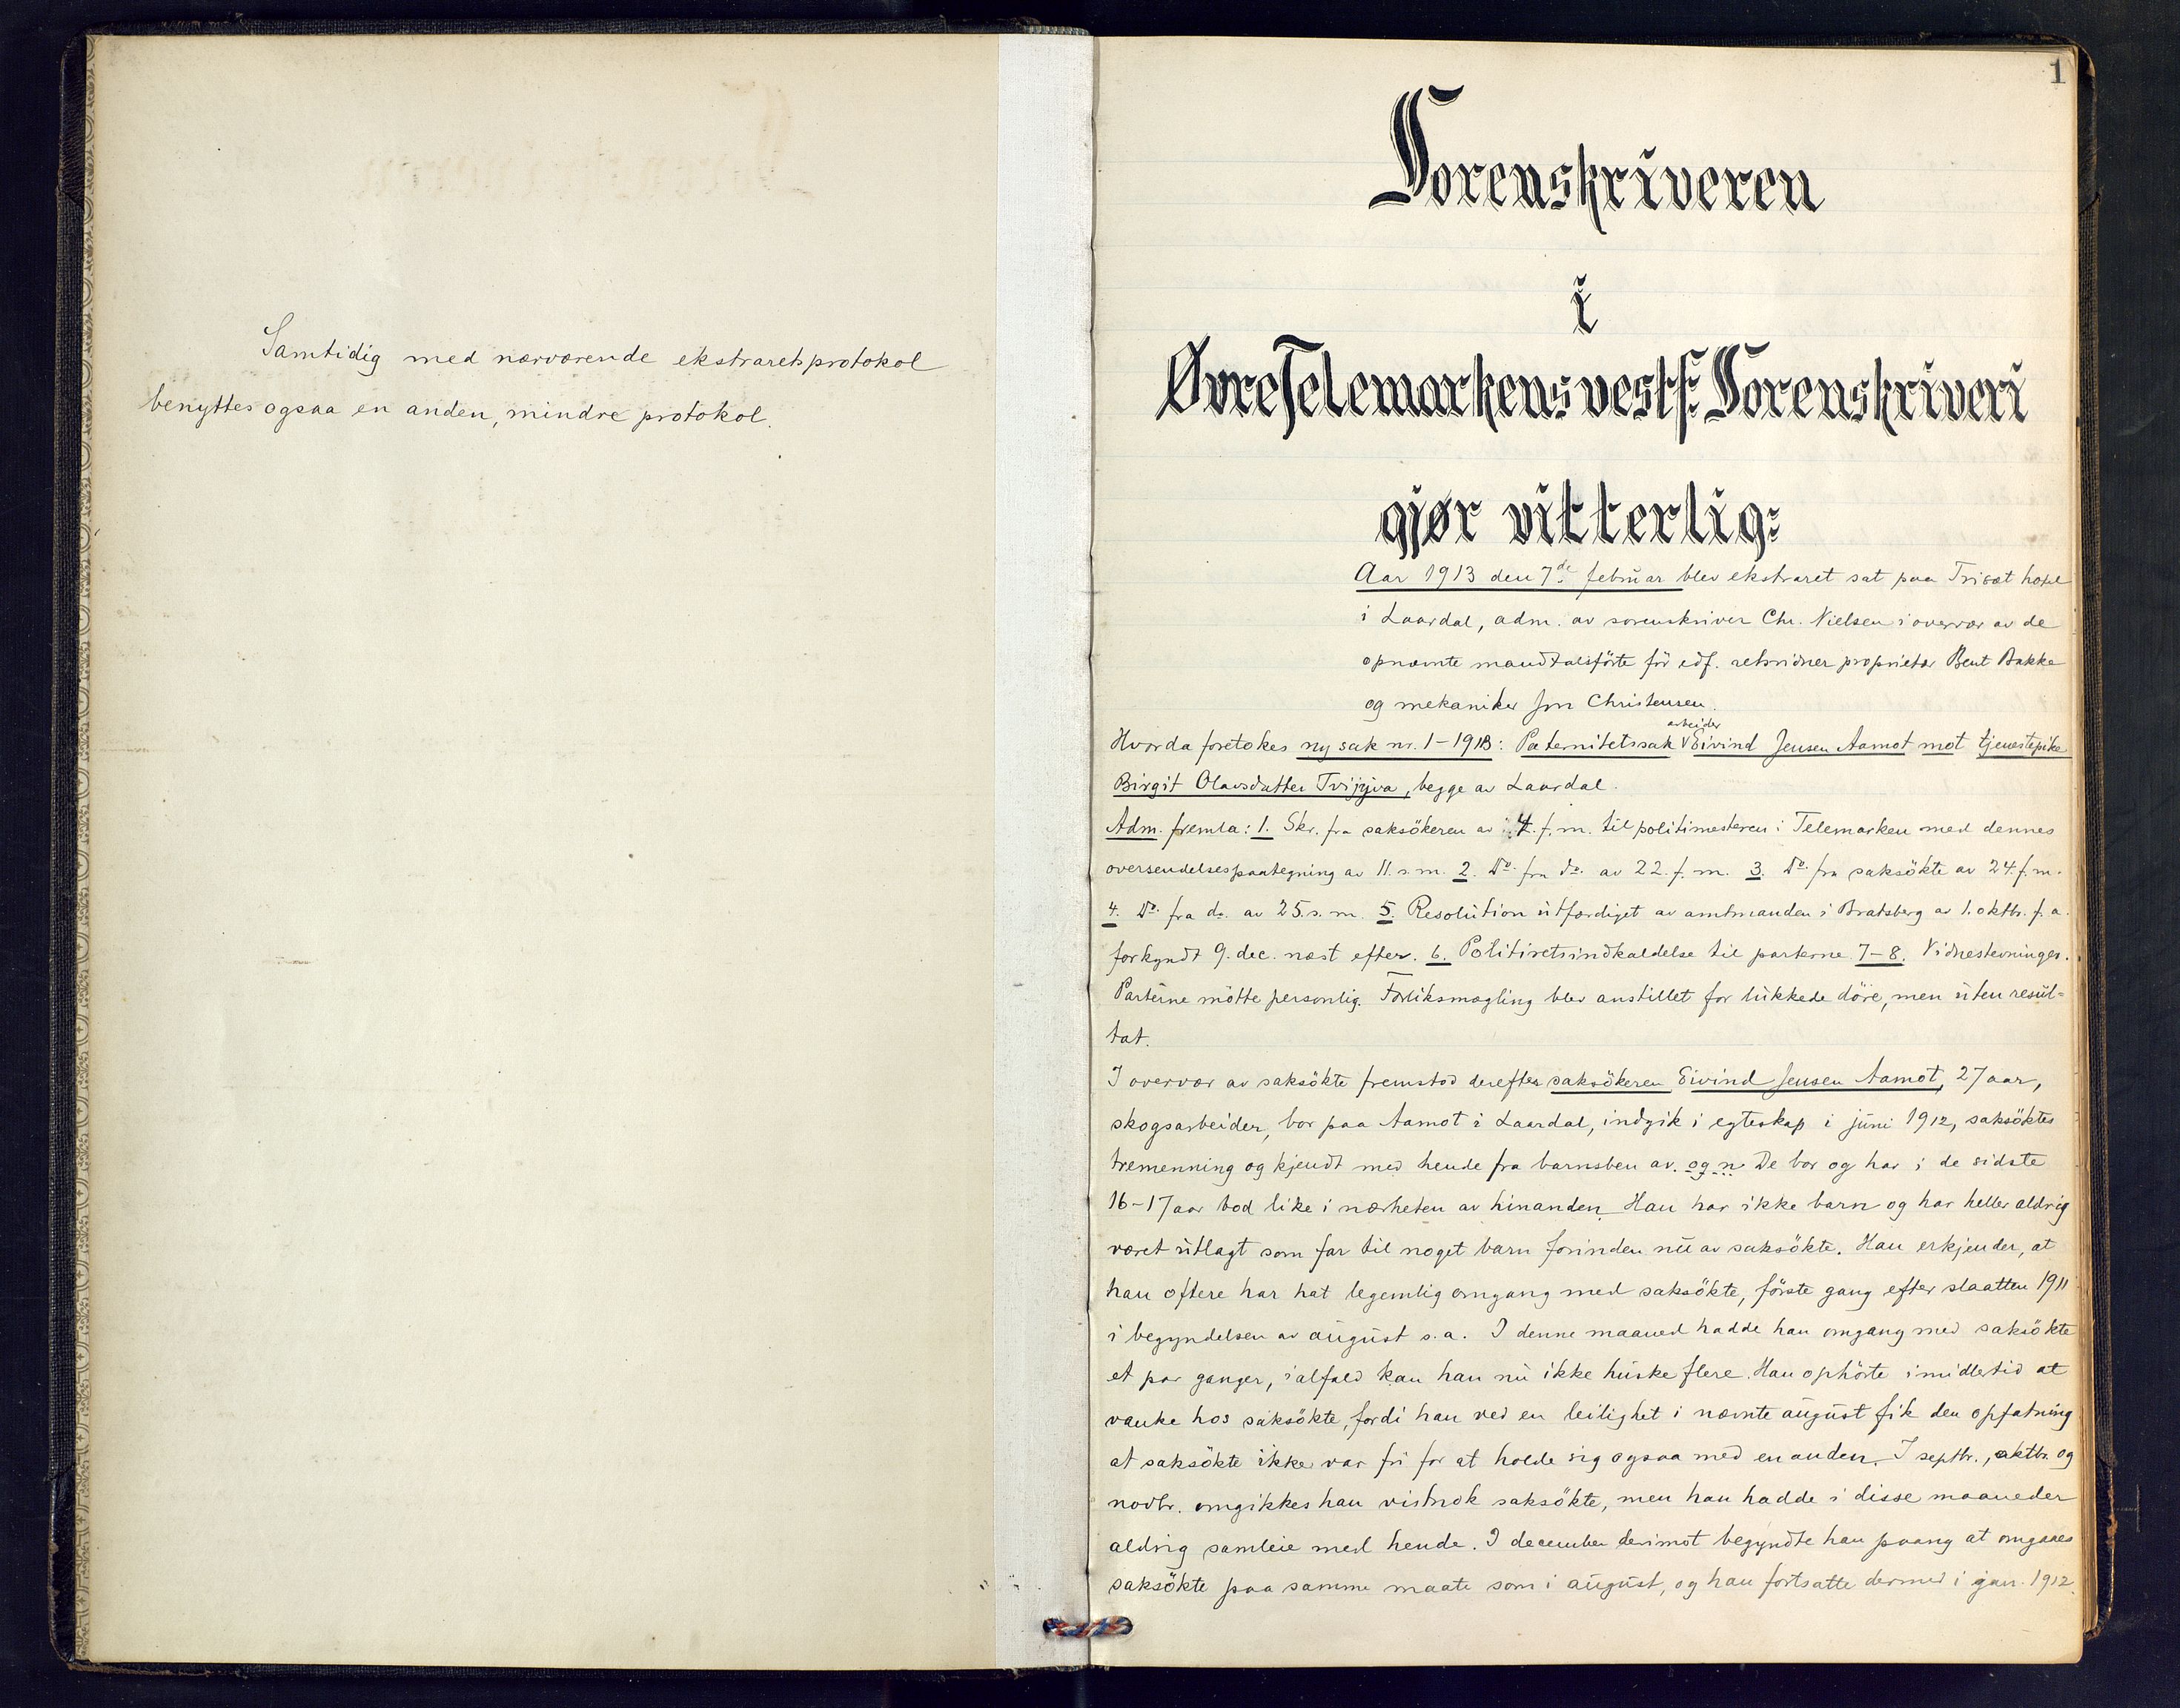 Samtidig med nærværende ekstraretsprotokol
benyttes ogsaa en anden, mindre protokol.
1
Sorenskriveren
i
Øvre Telemarkens vestf: Sorenskriveri
gjør vitterlig:
Aar 1913 den 7de februar blev ekstraret sat paa Trisæt hotel
i Laardal, adm. av sorenskriver Chr. Nielsen i overvær av de
opnævnte mandtalsförte för edf. retsvidner proprietær Bent Bakke
og mekaniker Jon Christensen.
arbeider
Hvorda foretokes ny sak nr. 1-1913: Paternitetssak v Eivind Jensen Aamot mot tjenestepike
Birgit Olavsdatter, begge av Laardal.
Adm. fremla: 1. Skr. fra saksökeren av 4. f. m. til politimesteren i Telemarken med dennes
oversendelsespaategning av 11. s. m. 2. Do. fra do. av 22. f. m. 3. Do. fra saksökte av 24. f. m.
4. Do. fra do. av 25. s. m. 5. Resolution utfærdiget av amtmanden i Bratsberg av 1. oktbr. f. a.
forkyndt 9. dec. næst efter. 6. Politiretsindkaldelse til parterne 7-8. Vidnestevninger.
Parterne mötte personlig. Forliksmægling blev anstillet for lukkede döre, men uten resul=
tat.
I overvær av saksökte fremstod derefter saksökeren Eivind Jensen Aamot, 27 aar,
skogsarbeider, bor paa Aamot i Laardal, indgik i egteskap i juni 1912, saksöktes
tremenning og kjendt med hende fra barnsben av. og n De bor og har i de sidste
16-17 aar bod like i nærheten av hinanden. Han har ikke barn og har heller aldrig
været utlagt som far til noget barn forinden nu av saksökte. Han erkjender, at
han oftere har hat legemlig omgang med saksökte, förste gang efter slaatten 1911
i begyndelsen av august s. a. I denne maaned hadde han omgang med saksökte
et par ganger, ialfald kan han nu ikke huske flere. Han ophörte imidlertid at
vanke hos saksökte, fordi han ved en leilighet i nævnte august fik den opfatning
at saksökte ikke var fri for at holde sig ogsaa med en anden. I septbr., oktbr. og
novbr. omgikkes han vistnok saksökte, men han hadde i disse maaneder
aldrig samleie med hende. I december derimot begyndte han paany at omgaaes
saksökte paa samme maate som i august, og han fortsatte dermed i jan. 1912.